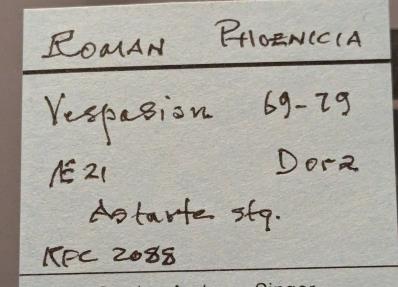 ROMAN PHOENICIA
Vespasian 69-79
Æ 21 Dora
Astarte stg.
RPC 2088